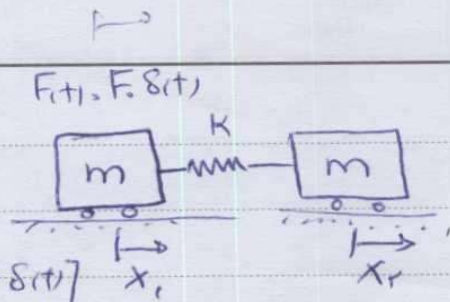 F(t) = F₀ δ(t)
K
m m
δ(t)]
x₁ x₂